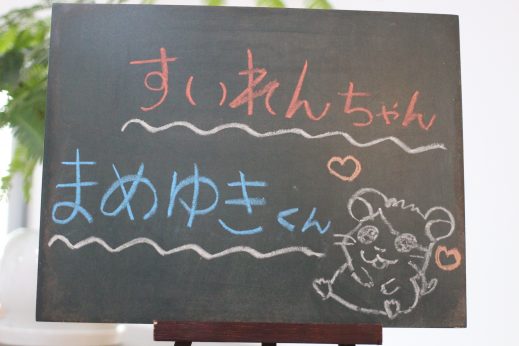 すいれんちゃん
まめゆきくん